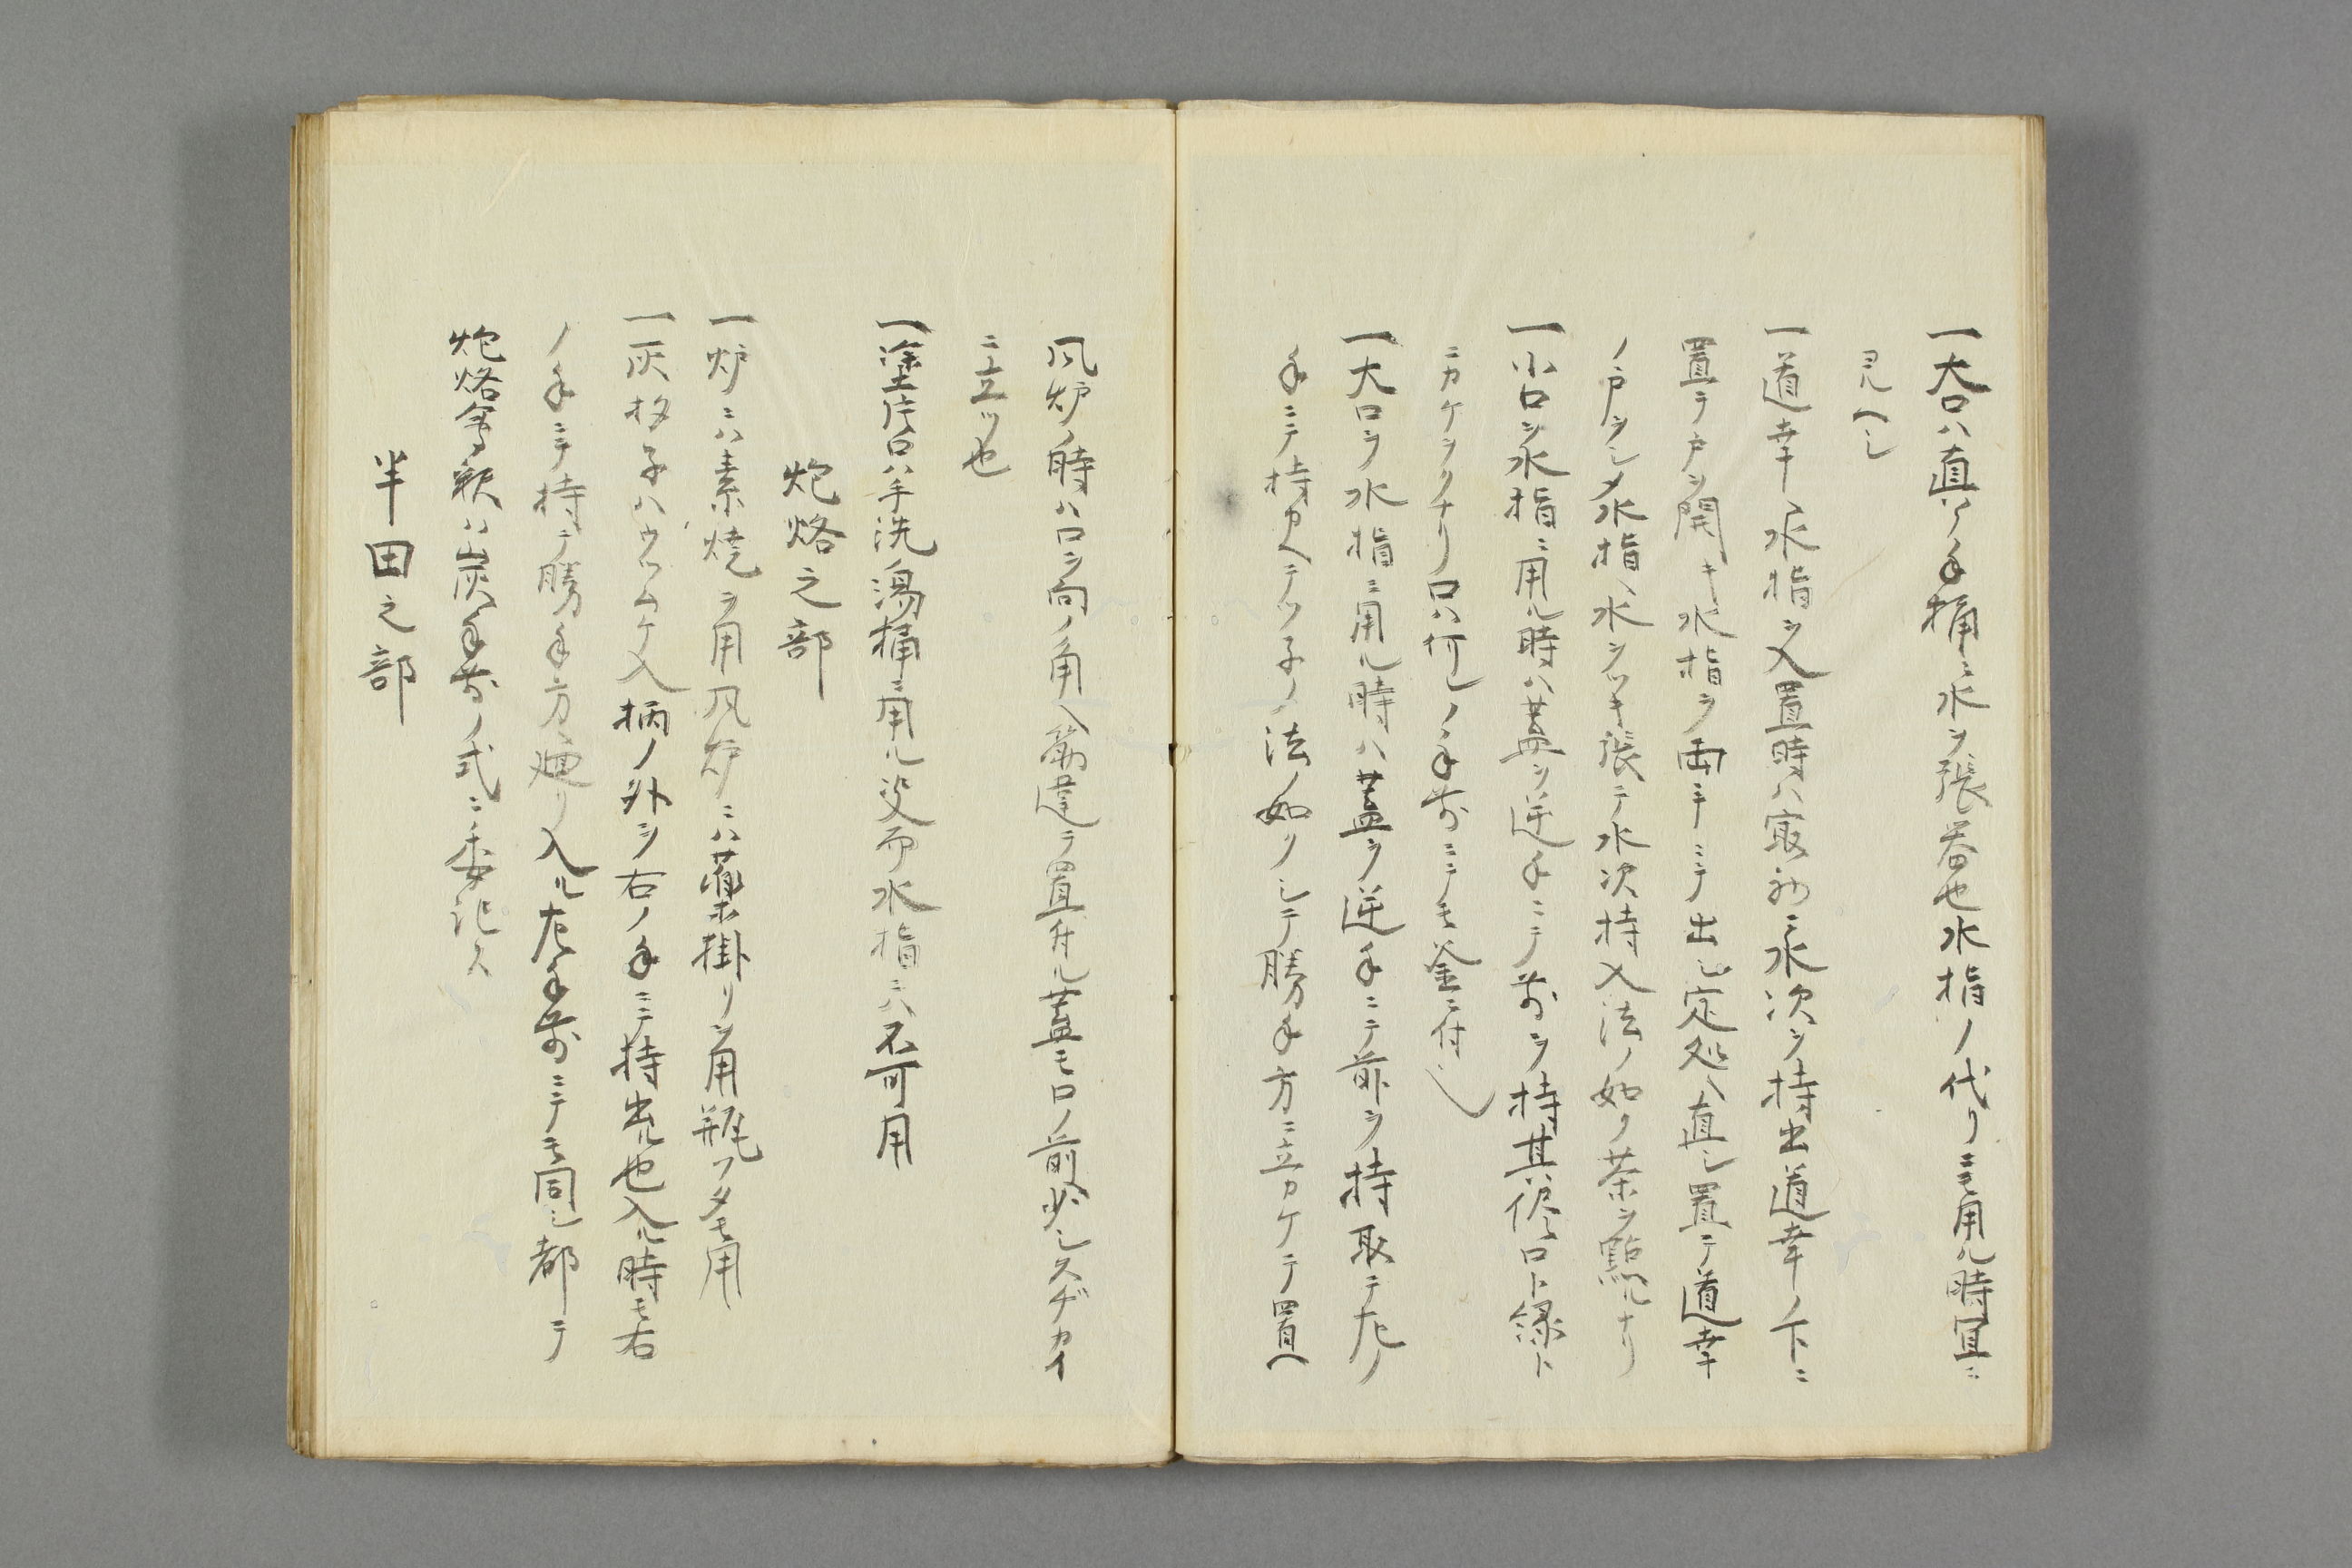 一大口ハ直ノ手桶ニ水ヲ張器也水指ノ代リニモ用ル時宜ニ
ヨルヘシ
一道幸ヘ水指ヲ入置時ハ最初ニ水次ヲ持出道幸ノ下ニ
置テ戸ヲ開キ水指ヲ両手ニテ出シ定処ヘ直シ置テ道幸
ノ戸ヲシメ水指ヘ水ヲツキ張テ水次持入法ノ如ク茶ヲ點ルナリ
一小口ヲ水指ニ用ル時ハ蓋ヲ逆手ニテ前ヲ持其侭口ト縁ト
ニカケヲクナリ口ハ何レノ手前ニテモ釜ニ付ヘシ
一大口ヲ水指ニ用ル時ハ蓋ヲ逆手ニテ前ヲ持取テ左ノ
手ニテ持カヘテツ子ノ法ノ如クシテ勝手方ニ立カケテ置ヘ
風炉ノ時ハ口ヲ向ノ角ヘ筋違テ置付ル蓋モ口ノ前ヘ少シスヂカイ
ニ立ツ也
一塗片口ハ手洗湯桶ニ用ル父而水指ニハ不可用
炮烙之部
一炉ニハ素焼ヲ用風炉ニハ藥掛リヲ用瓶フタモ用
一灰杓子ハウツムケ入柄ノ外ヲ右ノ手ニテ持出ル也入ル時モ右
ノ手ニテ持テ勝手方ヘ廻リ入ル左手前ニテモ同シ都テ
炮烙會釈ハ炭手前ノ式ニ委記ス
半田之部